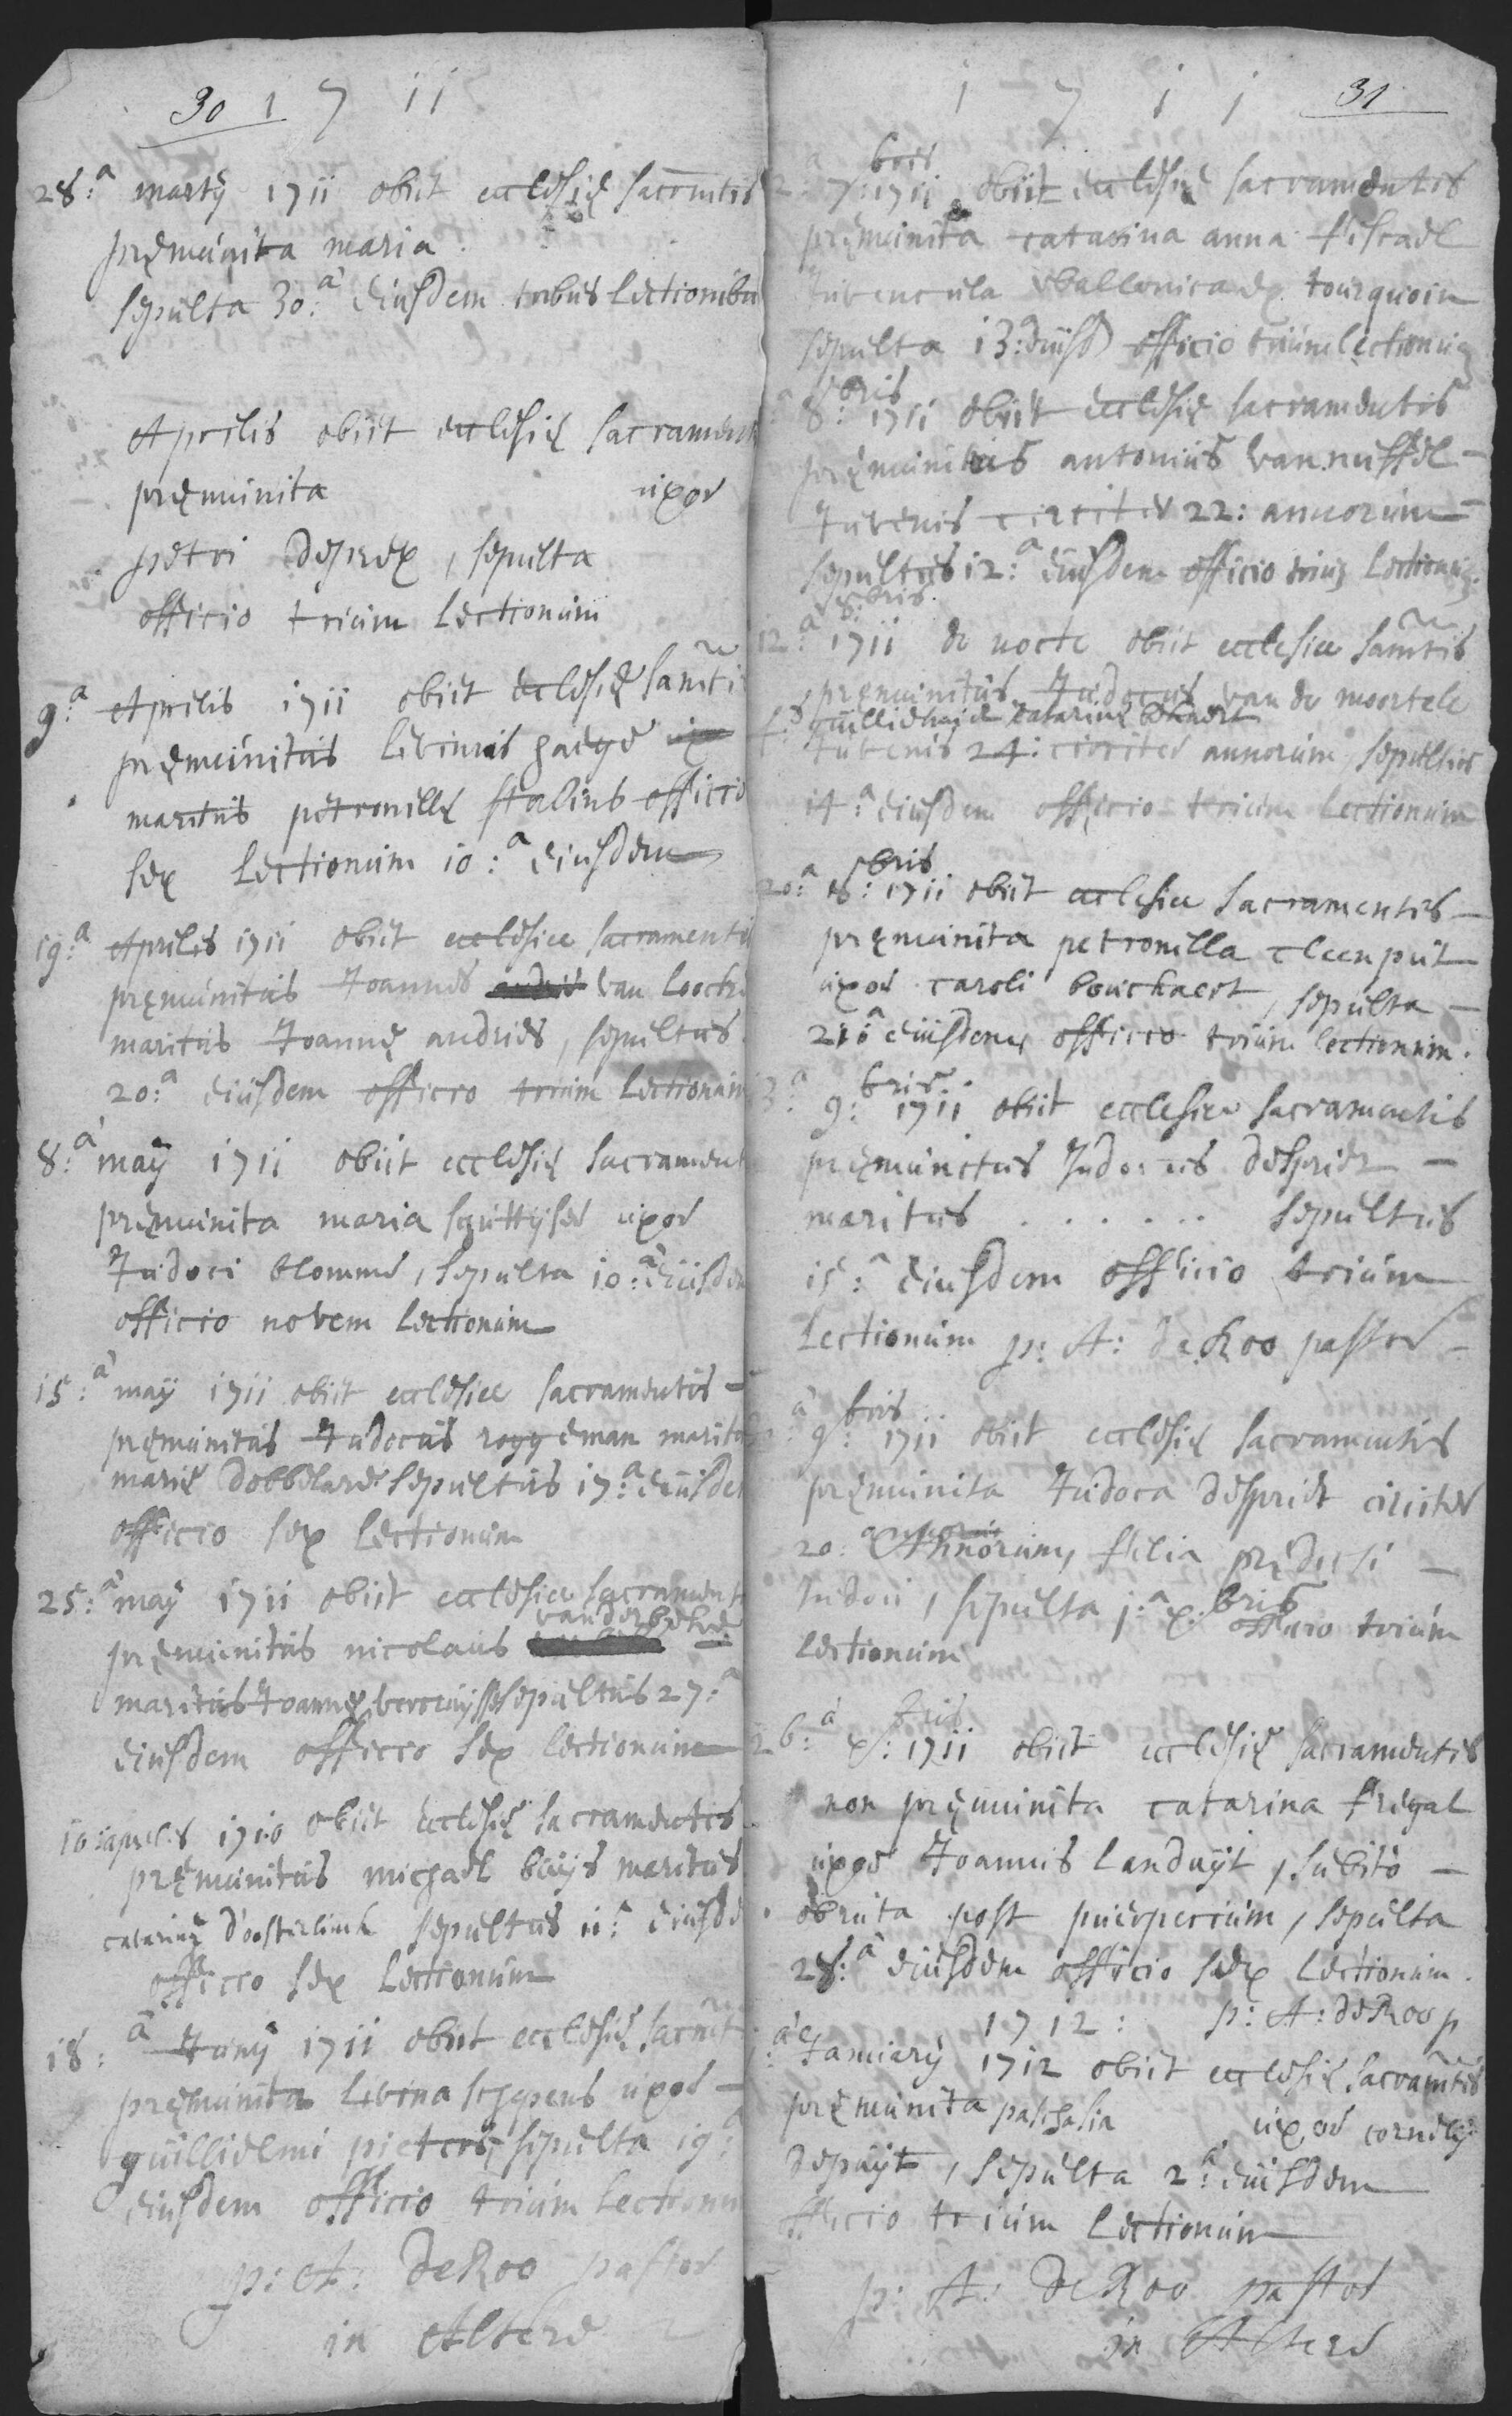 30 1 7 11
28:a martÿ 1711 obiit ecclesię sacrmtis
pręmunita maria
sepulta 30:a eiusdem tribus lectionibu
Aprilis obiit ecclesię sacrament
pręmunita uxor
petri desprex, sepulta
officio trium lectionum
9:a Aprilis 1711 obiit ecclesię samti
pręmunitus livinus haege
maritus petronillę stalins officio
sex lectionum 10:a eiusdem
19:a Aprilis 1711 obiit ecclesiæ sacramenti
pręmunitus Joannes andries van Loocke
maritus Joannę andries, sepultus
20:a eiusdem officio trium lectionum
8:a maÿ 1711 obiit ecclesię sacrament
pręmunita maria schuttÿser uxor
Judoci blomme, sepulta 10:a eiusdem
officio novem lectionum
15:a maÿ 1711 obiit ecclesiæ sacramentis
pręmunitus Judocus roggeman maritus
marię dobbelare sepultus 17:a eiusdem
officio sex lectionum
25:a maÿ 1711 obiit ecclesiæ sacrament
vanderbeke
pręmunitus nicolaus
maritus Joannę vercruÿsse sepultus 27:a
eiusdem officio sex lectionum
10: aprilis 1710 obiit ecclesię sacramentis
pręmunitus michael buÿs maritus
catarinę d'oosterlinck sepultus 11:a eiusde
officio sex lectionum
18:a Junÿ 1711 obiit ecclesię sacrmt
pręmunita livina schepens uxor
guillielmi pieters, sepulta 19:a
eiusdem officio trium lectionum
p: A: DeRoo pastor
in Altere
1 7 1 1 31
2:a 7:bris 1711 obiit ecclesiæ sacramentis
pręmunita catarina anna
Juvencula wallonica ex tourquoin
sepulta 13:a eiusd officio trium lectionum
8:bris 1711 obiit ecclesię sacramentis
pręmunitus antonius van nuffel
Juvenis circiter 22: annorum
sepultus 12:a eiusdem officio trium lectionum
12:a 8:bris 1711 de nocte obiit ecclesiæ samtis
pręmunitus Judocus van de moortele
f:s guillielmi et catarinę
Juvenis 24: circiter annorum, sepultus
14:a eiusdem officio trium lectionum
20:a 8:bris 1711 obiit ecclesiæ sacramentis
pręmunita petronilla cleenput
uxor caroli bouckaert, sepulta
21:a eiusdem officio trium lectionum.
3:a 9:bris 1711 obiit ecclesiæ sacramentis
pręmunctus Judocus despriet
maritus . . . . . . sepultus
15:a eiusdem officio trium
lectionum p: A: DeRoo pastor
a 9:bris 1711 obiit ecclesię sacramentis
pręmunita Judoca despriet circiter
20: annorum, filia prędicti
Judoci, sepulta 1:a x:bris officio trium
lectionum
26:a x:bris 1711 obiit ecclesię sacramentis
non pręmunita catarina fregal
uxor Joannis landuÿt, subito
obruta post puerperium, sepulta
28:a eiusdem officio sex lectionum.
1712: p: A: deRoo p
a Januarÿ 1712 obiit ecclesię sacramtis
pręmunita paschasia uxor cornelÿ
depuÿt, sepulta 2:a eiusdem
officio trium lectionum
p: A: DeRoo pastor
in Altere